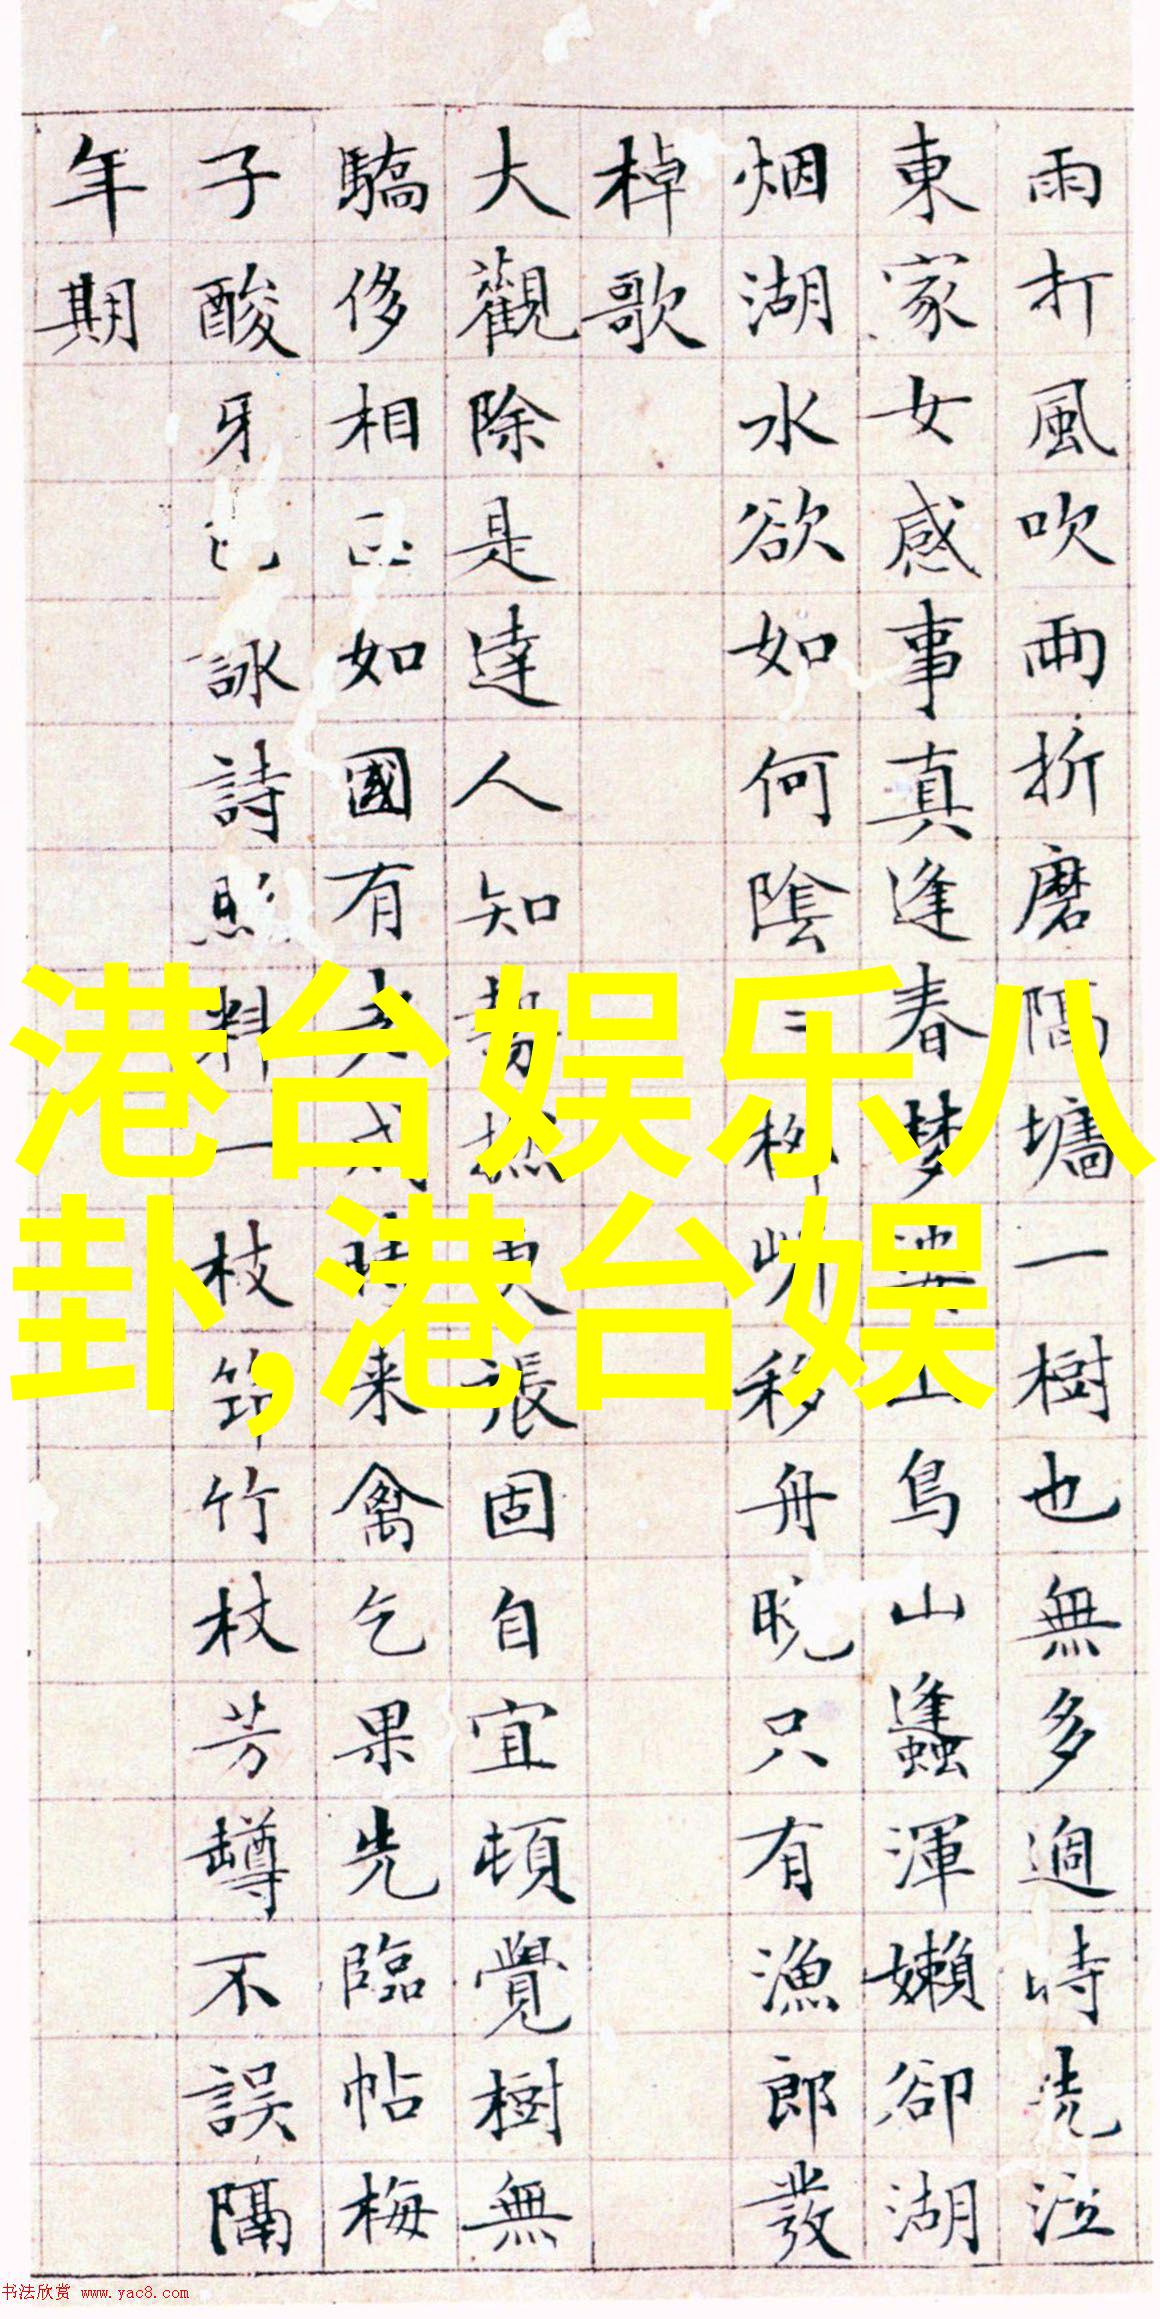 雨打風吹兩折磨隔墻一樹也無多過時泣
東家女感事真逢春夢山鳥山蠭渾嬾卻湖
烟湖水欲如何陰移舟晚只有漁郎發
棹歌
大觀除是達人知張固自宜頓覺樹無
驕侈相如國有来禽乞果先臨帖梅
子酸牙詠詩照料一枝筇竹杖芳罇不誤隔
年期
港台娱乐八
卦,港台娱
书法欣赏 www.yac8.com